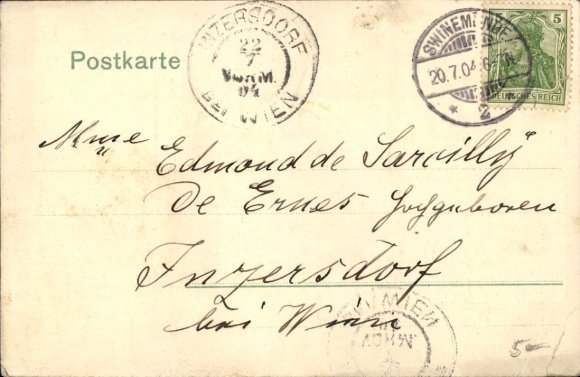 Postkarte
INZERSDORF
22
7
VORM.
04
BEI WIEN
SWINEMÜNDE
20.7.04
* 2 *
5
DEUTSCHES REICH
Mme
Edmond de Sarcilly
De Ernes Hochgeboren
Inzersdorf
bei Wien
WIEN
5-